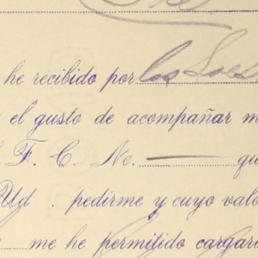 he recibido por los Sres
el gusto de acompañar m
F. C. No. —— qu
Ud. pedirme y cuyo valo
me he permitido cargar